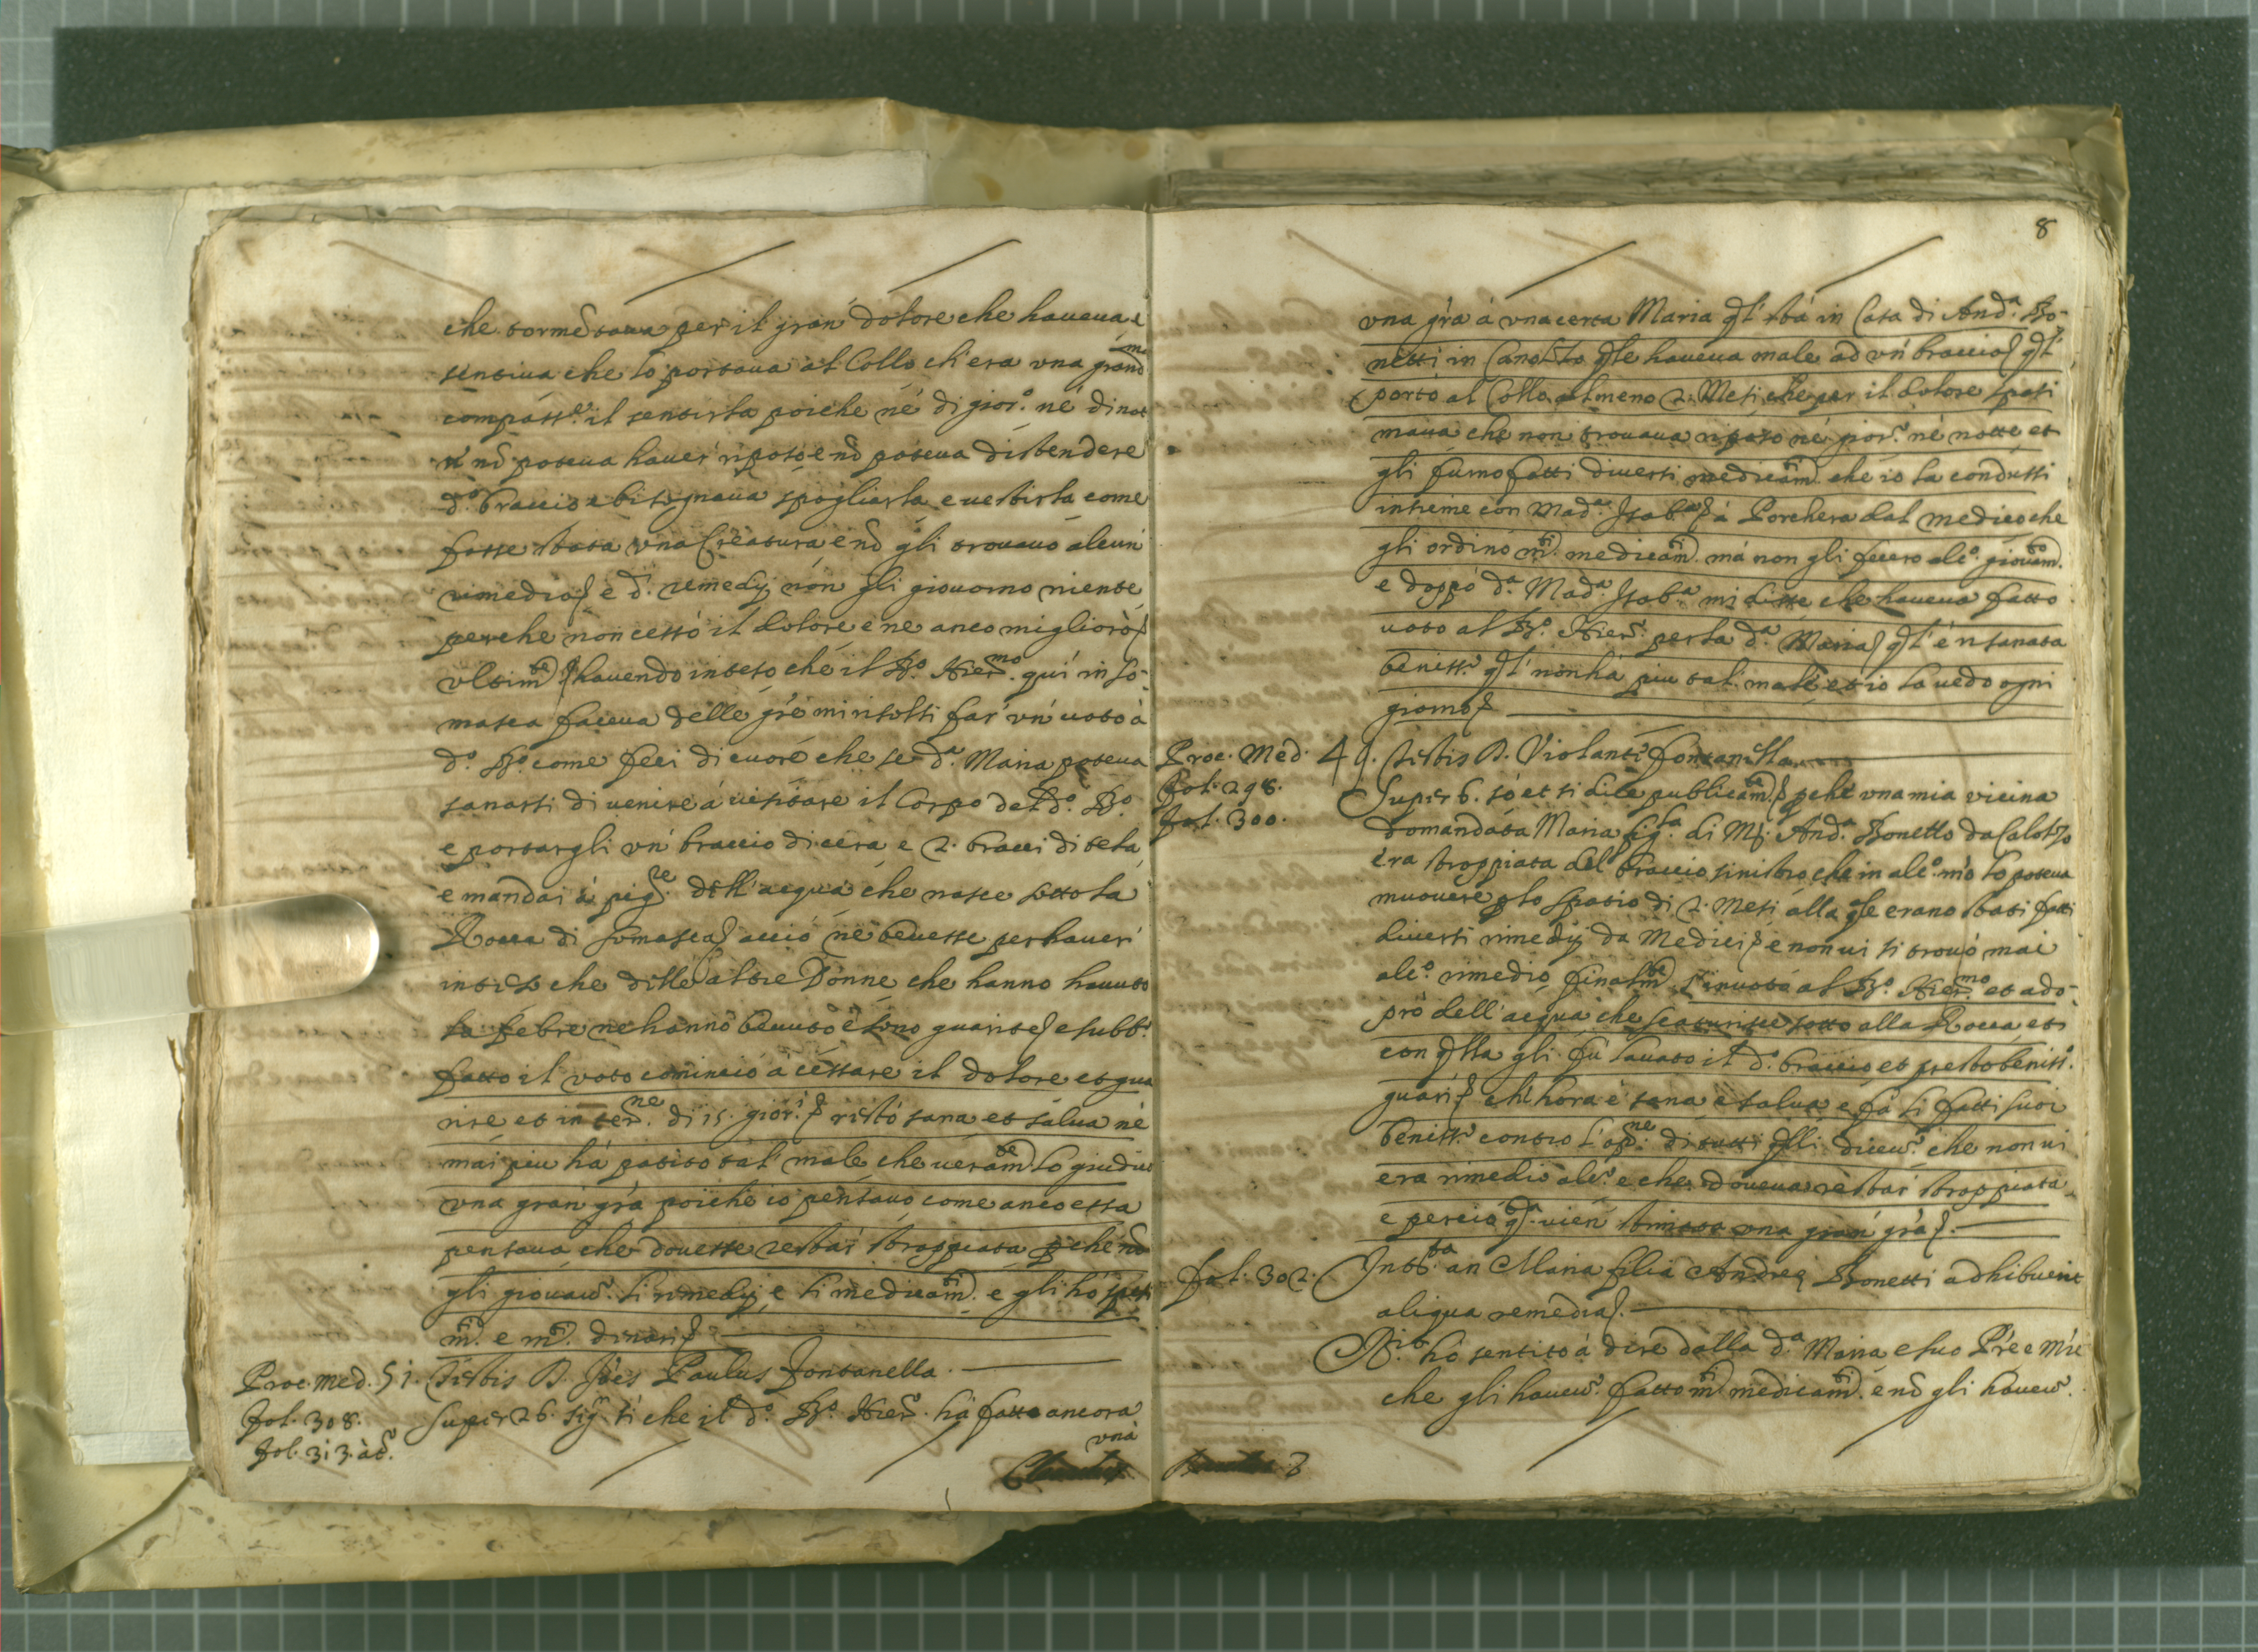 che tormẽtaua per il gran' dolore che haueua e
sentiua che lo portaua al Collo ch'era una grandma
compass.e il sentirla poiche nè di gior.o nè di not
nõ poteua hauer' riposo e nõ poteua distendere
d.o braccio e bisognaua spogliarla e uestirla come
fosse stata una Creatura e nõ gli trouauo alcun'
rimedio e d.i remedij non gli giouorno niente
perche non cessò il dolore e ne anco migliorò
vltimte hauendo inteso che il B.o Hiermo qui in So-
masca faceua delle grẽ mi risolsi far' un' uoto à
d.o B.o come feci di cuore che se d.a Maria poteua
sanarsi di uenire á uisitare il Corpo del d.o B.o
e portargli un' braccio di cera e 2. bracci di tela
e mandai à pigre dell'acqua che nasce sotto la
Rocca di Somasca acciò ne beuesse per hauer'
inteso che delle altre Donne che hanno hauuto
la febre ne hanno beuuto e sono guarite e subb.o
fatto il voto cominciò à cessare il dolore et gua
rire et in terne di 15. gior.i restò sana et salua nè
mai piu há patito tal' male che ueramte lo giudico
una gran' grà poiche io pensauo come anco essa
pensaua che douesse restar' stroppiata pche nõ
gli giouau.o li rimedij e li medicamti e gli hó spesi
mti e mti dinari
Proc. Med. 51. Testis D. Joẽs Paulus Fontanella.
Fol. 308. Super 26. sig.r sì che il d.o B.o Hier.o há fatto ancora
Fol. 313. àt.o
una
8
una grà à una certa Maria ql' stà in Casa di And.a Bo-
netti in Calolzo qle haueua male ad un' braccio ql'
portò al Collo almeno 2. Mesi che per il dolore spasi
maua che non trouaua riposo né gior.o nè notte et
gli furno fatti diuersi medicamti che io la condussi
insieme con Mad.a Isab.a à Porchera dal medico che
gli ordinó mti medicamti má non gli fecero alc.o giouamto
e doppó d.a Mad.a Isab.a mi disse che haueua fatto
uoto al B.o Hier.o per la d.a Maria ql' é risanata
beniss.o ql' non há piu tal male et io la uedo ogni
giorno
Proc. Med. 49. Testis D. Violante Fontanella
Fol. 298. Super 6. só et si dice publicamte pche una mia vicina
Fol. 300. domandata Maria figla di Mr. And.a Bonetto da Calolzo
era stroppiata del braccio sinistro che in alc.o mò lo poteua
muouere p lo spatio di 2. Mesi alla qle erano stati fatti
diuersi rimedij da Medici e non ui si trouò mai
alc.o rimedio finalmte s'inuotò al B.o Hiermo et ado-
prò dell'acqua che scaturisce sotto alla Rocca et
con qlla gli fu lauato il d.o braccio et presto beniss.o
guarì ch'hora é sana e salua e fà li fatti suoi
beniss.o contro l'opne di tutti qlli diceu.o che non ui
era rimedio alc.o e che doueua restar' stroppiata
e perciò qsta uien' stimata una gran' grà.
Fol. 302. Intta an Maria filia Andreę Bonetti adhibuerit
aliqua remedia.
Rit. hò sentito á dire dalla d.a Maria e suo Prẽ e Mrẽ
che gli haueu.o fatto mti medicamti e nõ gli haueu.o